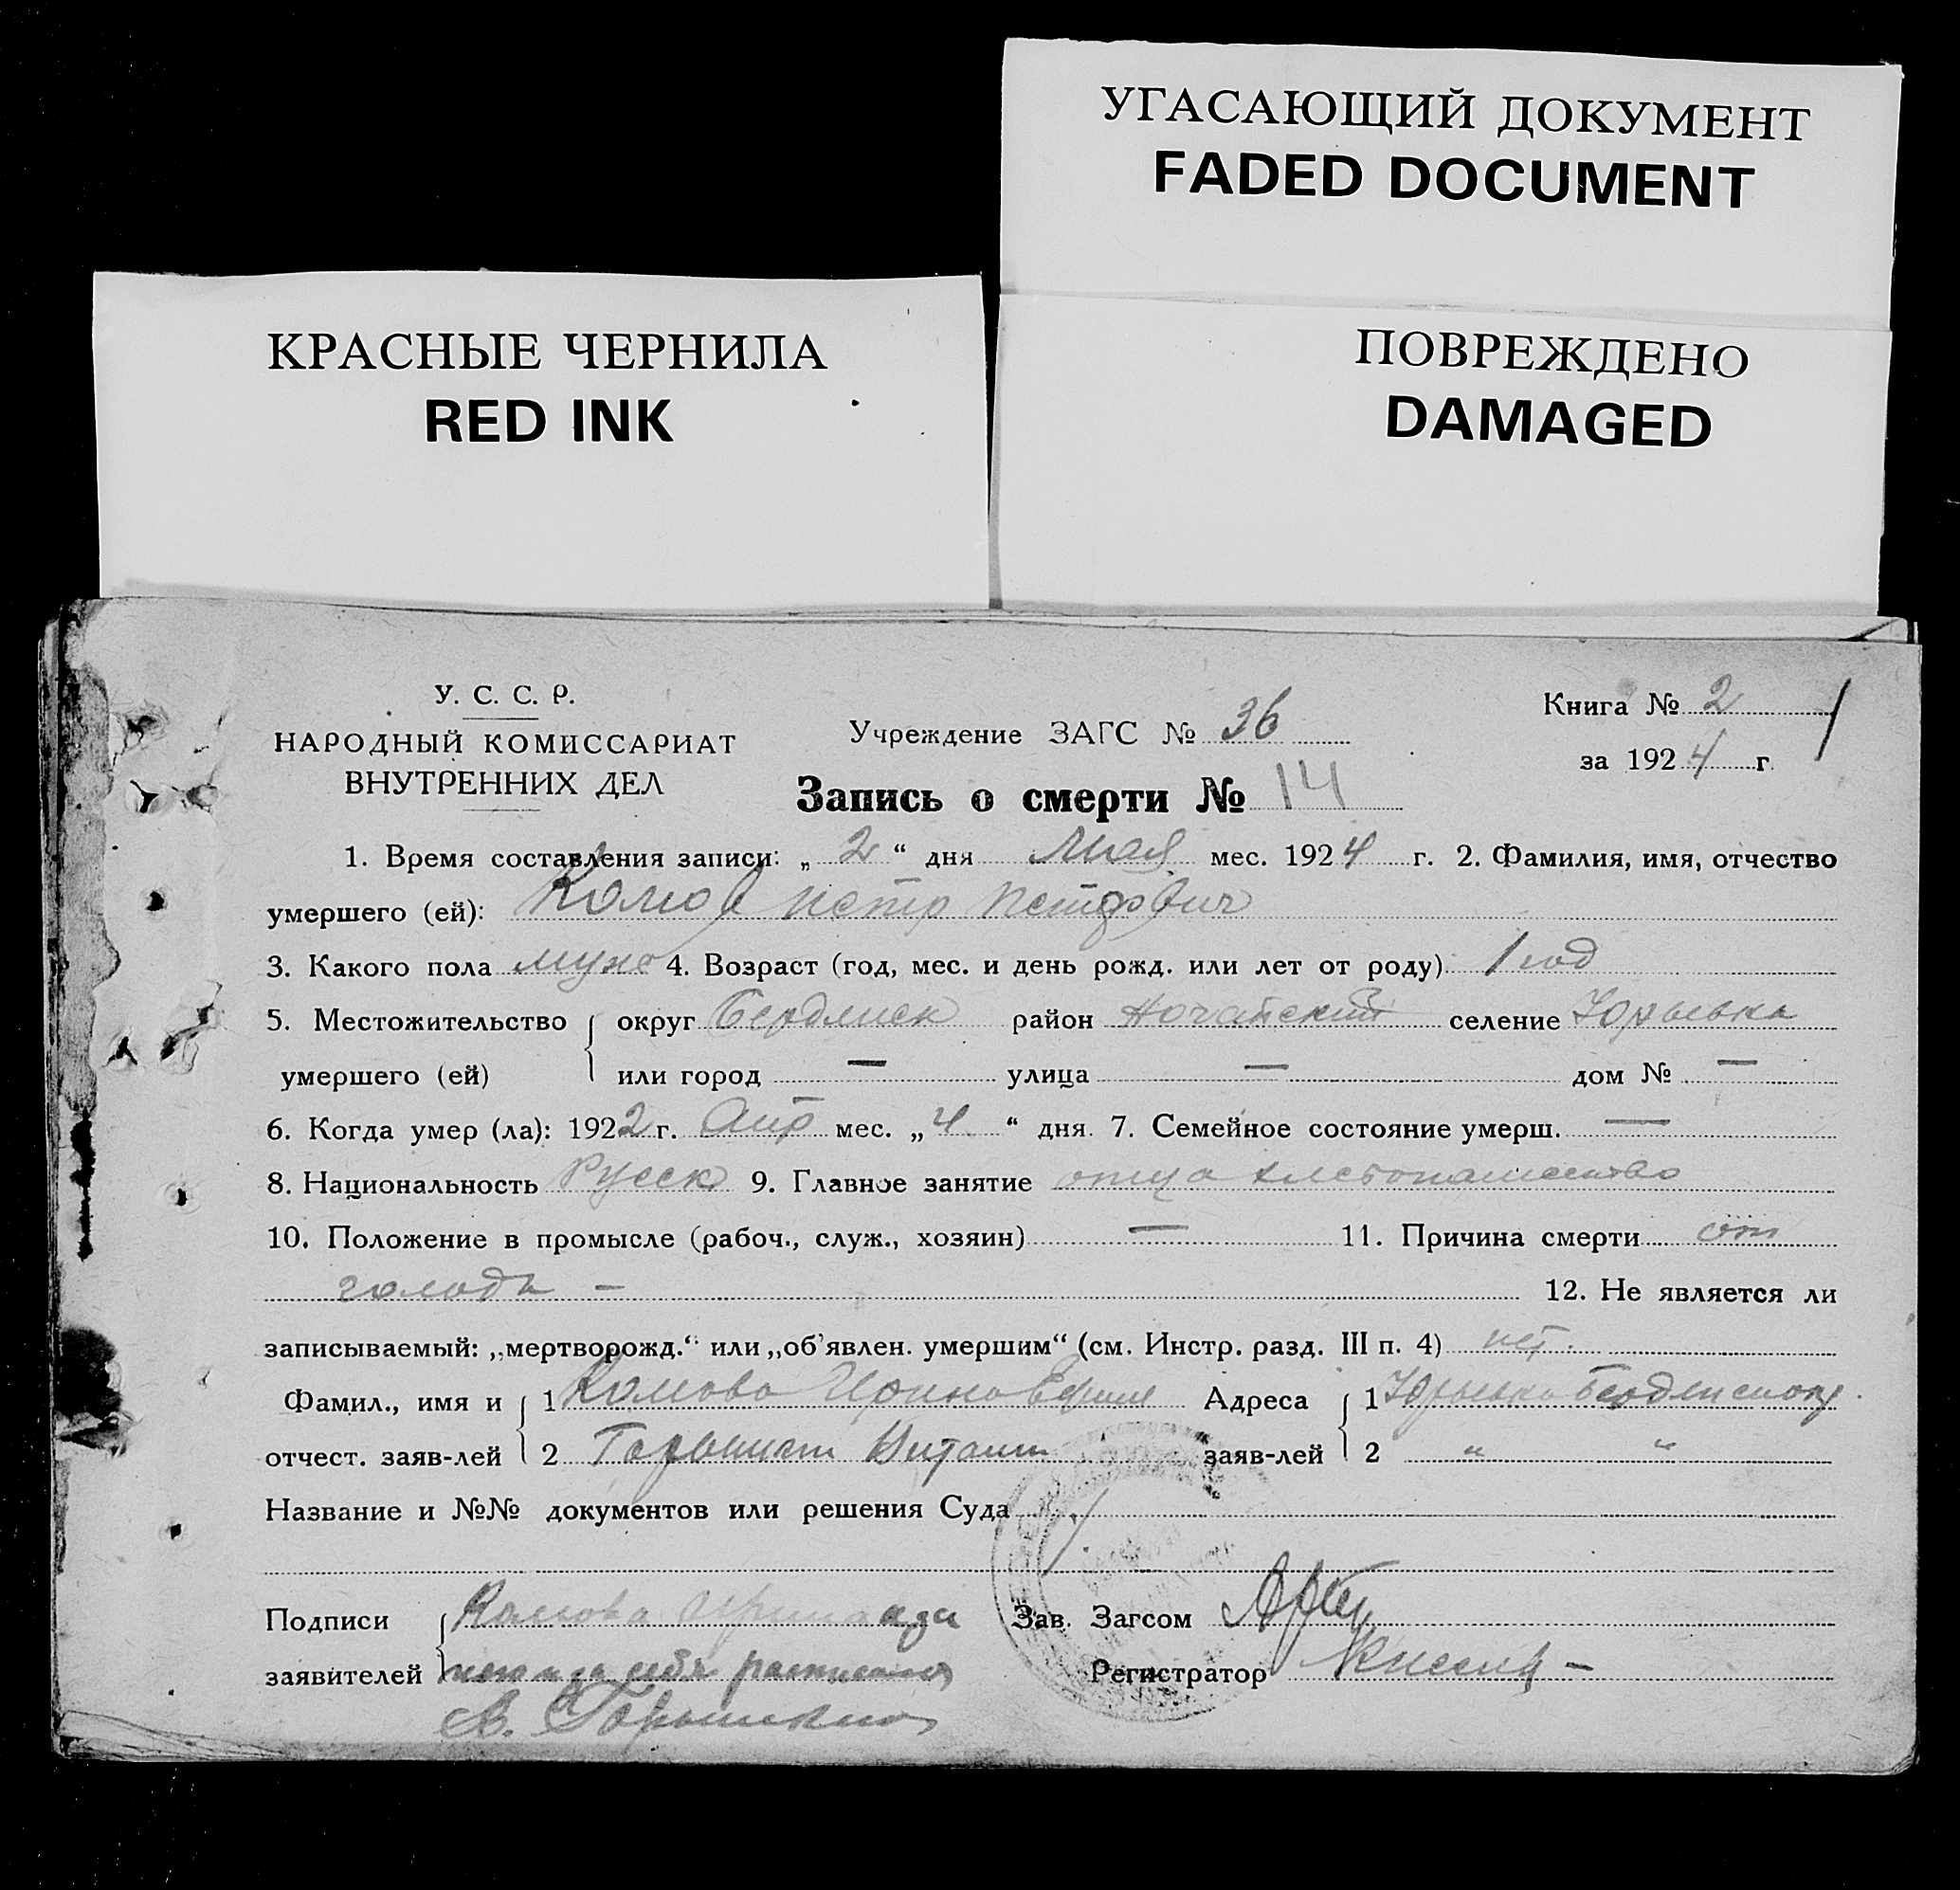 УГАСАЮЩИЙ ДОКУМЕНТ
FADED DOCUMENT
КРАСНЫЕ ЧЕРНИЛА
RED INK
ПОВРЕЖДЕНО
DAMAGED
У. С. С. Р.
НАРОДНЫЙ КОМИССАРИАТ
ВНУТРЕННИХ ДЕЛ
Учреждение ЗАГС № 36
Книга № 2
за 1924 г.
Запись о смерти № 14
1. Время составления записи: „ 2 “ дня Мая мес. 1924 г. 2. Фамилия, имя, отчество
умершего (ей): Комов Петр Петрович
3. Какого пола муж 4. Возраст (год, мес. и день рожд. или лет от роду) 1 год
5. Местожительство округ Бердянск район селение Юрьевка
умершего (ей) или город — улица — дом № —
6. Когда умер (ла): 1922 г. Апр мес. „ 4 “ дня. 7. Семейное состояние умерш. —
8. Национальность Русск 9. Главное занятие отца хлебопашество
10. Положение в промысле (рабоч., служ., хозяин) — 11. Причина смерти от
голода — 12. Не является ли
записываемый: „мертворожд.“ или „об'явлен. умершим“ (см. Инстр. разд. III п. 4) нет.
Фамил., имя и 1 Комова Ирина Адреса 1 Юрьевка
отчест. заяв-лей 2 заяв-лей 2 " "
Название и №№ документов или решения Суда
Подписи Комова Ирина Зав. Загсом
заявителей и за себя Регистратор